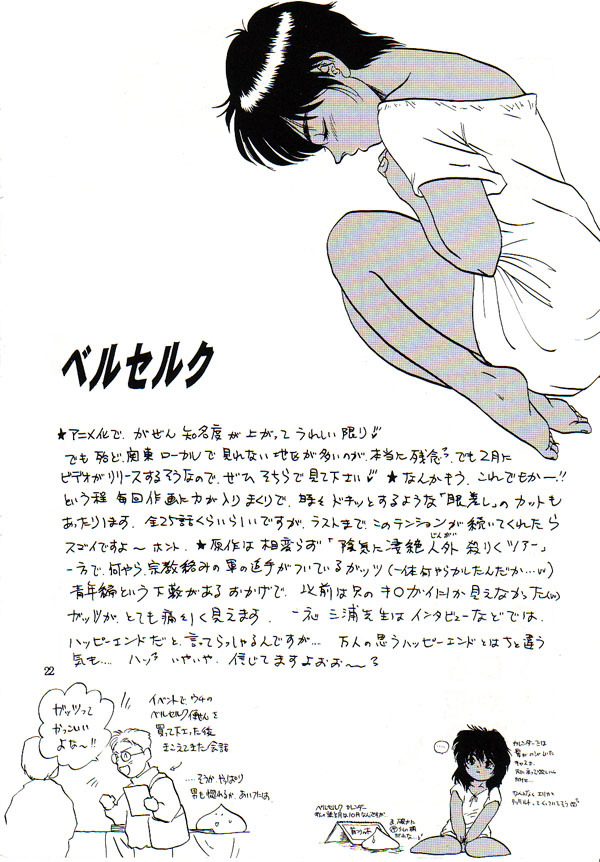 ベルセルク
★アニメ化で、がぜん知名度が上がってうれしい限り♡
でも殆ど、関東ローカルで見れない地もが多いのが、本当に残念。でも2月に
ビデオがリリースするそうなので、ぜひそちらで見て下さい♡ ★なんかもう、これでもかー!!
という程毎回作画に力が入りまくりで、時々ドキッとするような「眼差し」のカットも
あったりします。全25話くらいらしいですが、ラストまで、このテンションが続いてくれたら
スゴイですよ〜 ホント。★原作は相変らず「陰気に凄絶人外殺りくツアー」
じんがい
一方で、何やら、宗教絡みの軍の追手がついているガッツ(一体何やらかしたんだか…)
青年編という下敷があるおかげで、以前は只のキ○ガイにしか見えなかった
ガッツが、とても痛々しく見えます。一応三浦先生はインタビューなどでは、
ハッピーエンドだと、言ってらっしゃるんですが… 万人の思うハッピーエンドとはちと違う
気も…. ハッ いやいや、信じてますよおお〜
22
ガッツって
かっこいい
よな〜!!
イベントで、ウチの
ベルセルク便せんを
買って下さった後
きこえてきた会話
…そうか、やっぱり
男も惚れるか、あいつには。
…
ベルセルク カレンダー
カレンダーでは